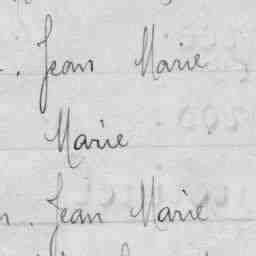 . Jean Marie
Marie
. Jean Marie